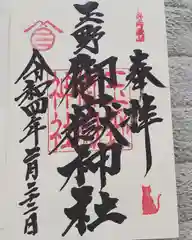 奉拝
玉野御嶽神社
令和四年二月二十二日